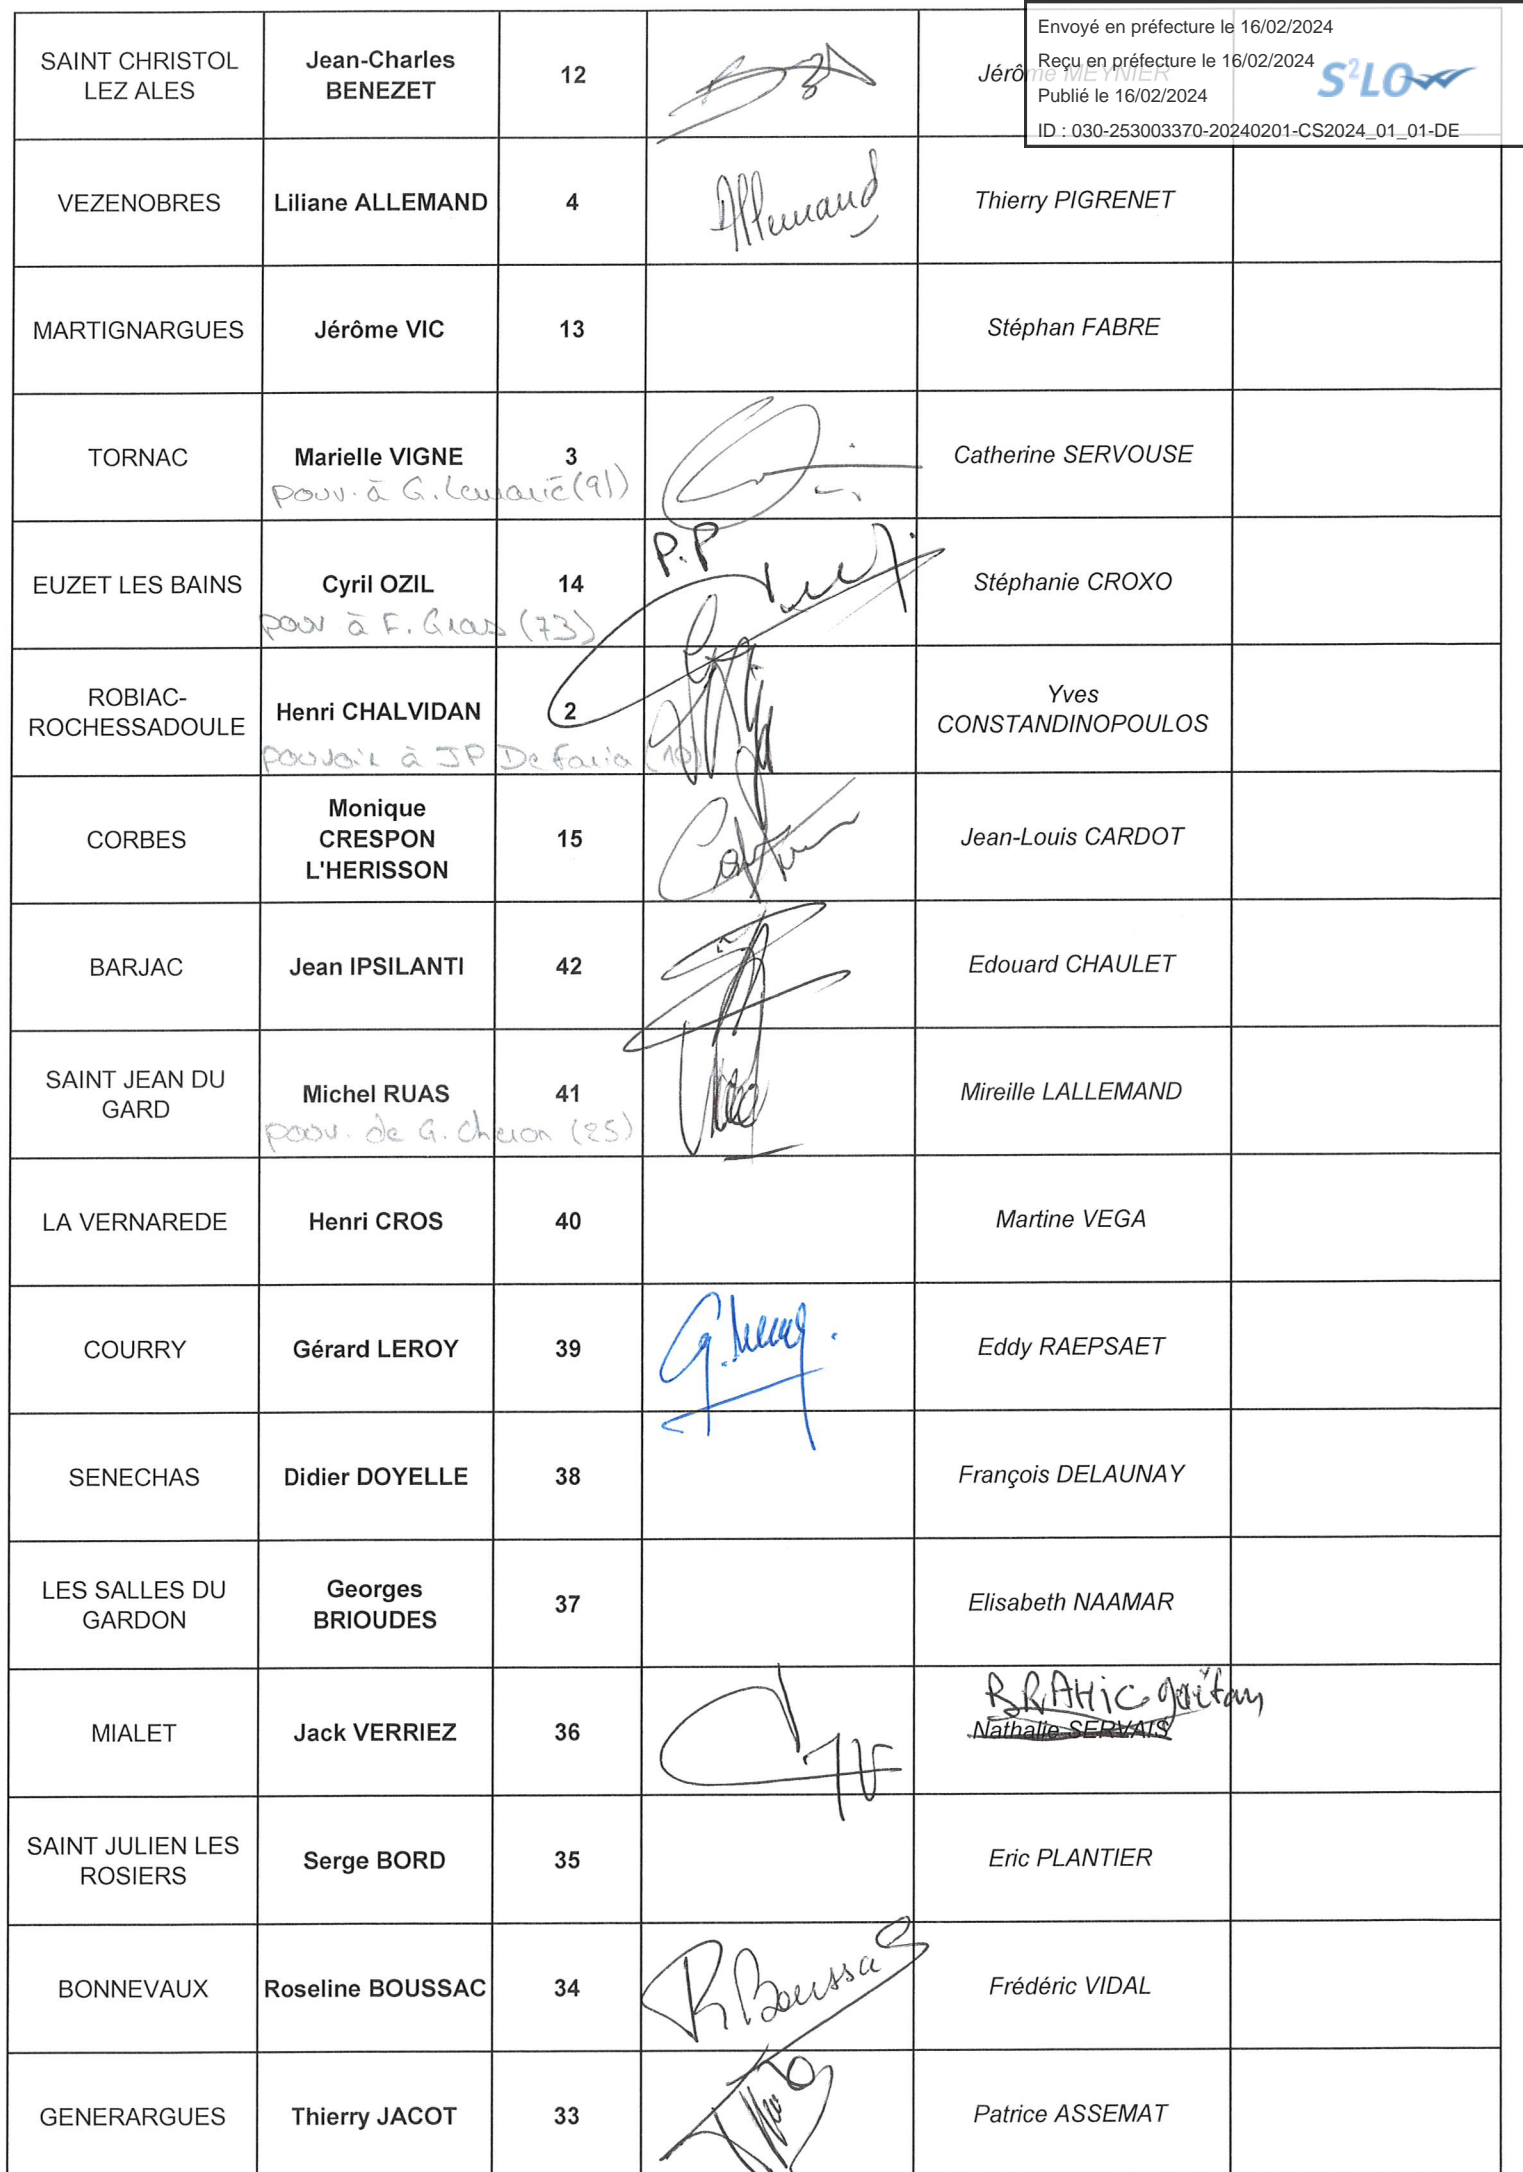 Envoyé en préfecture le 16/02/2024
Reçu en préfecture le 16/02/2024
Publié le 16/02/2024
S²LOW
ID : 030-253003370-20240201-CS2024_01_01-DE
SAINT CHRISTOL LEZ ALES
Jean-Charles BENEZET
12
Jérôme MEYNIER
VEZENOBRES
Liliane ALLEMAND
4
Allemand
Thierry PIGRENET
MARTIGNARGUES
Jérôme VIC
13
Stéphan FABRE
TORNAC
Marielle VIGNE
3
pouv. à G. Lemarié (91)
Catherine SERVOUSE
EUZET LES BAINS
Cyril OZIL
14
pouv à F. Gras (73)
P.P
Stéphanie CROXO
ROBIAC-ROCHESSADOULE
Henri CHALVIDAN
2
pouvoir à JP De Faria (10)
Yves CONSTANDINOPOULOS
CORBES
Monique CRESPON L'HERISSON
15
Jean-Louis CARDOT
BARJAC
Jean IPSILANTI
42
Edouard CHAULET
SAINT JEAN DU GARD
Michel RUAS
41
pouv. de G. Cheron (25)
Mireille LALLEMAND
LA VERNAREDE
Henri CROS
40
Martine VEGA
COURRY
Gérard LEROY
39
Eddy RAEPSAET
SENECHAS
Didier DOYELLE
38
François DELAUNAY
LES SALLES DU GARDON
Georges BRIOUDES
37
Elisabeth NAAMAR
MIALET
Jack VERRIEZ
36
BRAHIC gaëtan
Nathalie SERVAIS
SAINT JULIEN LES ROSIERS
Serge BORD
35
Eric PLANTIER
BONNEVAUX
Roseline BOUSSAC
34
R. Boussac
Frédéric VIDAL
GENERARGUES
Thierry JACOT
33
Patrice ASSEMAT